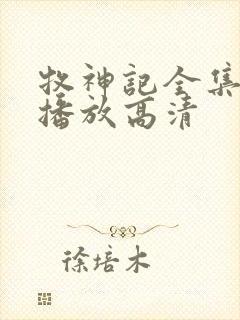 牧神记全集
播放高清
徐培木